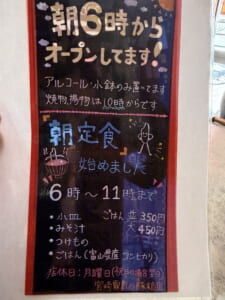 朝6時から
オープンしてます!
アルコール・小鉢のみ置いてます
焼物,揚物は10時からです
朝定食
始めました
6時〜11時まで
・小皿 ごはん 並350円
・みそ汁 大450円
・つけもの
・ごはん(富山県産コシヒカリ)
店休日:月曜日